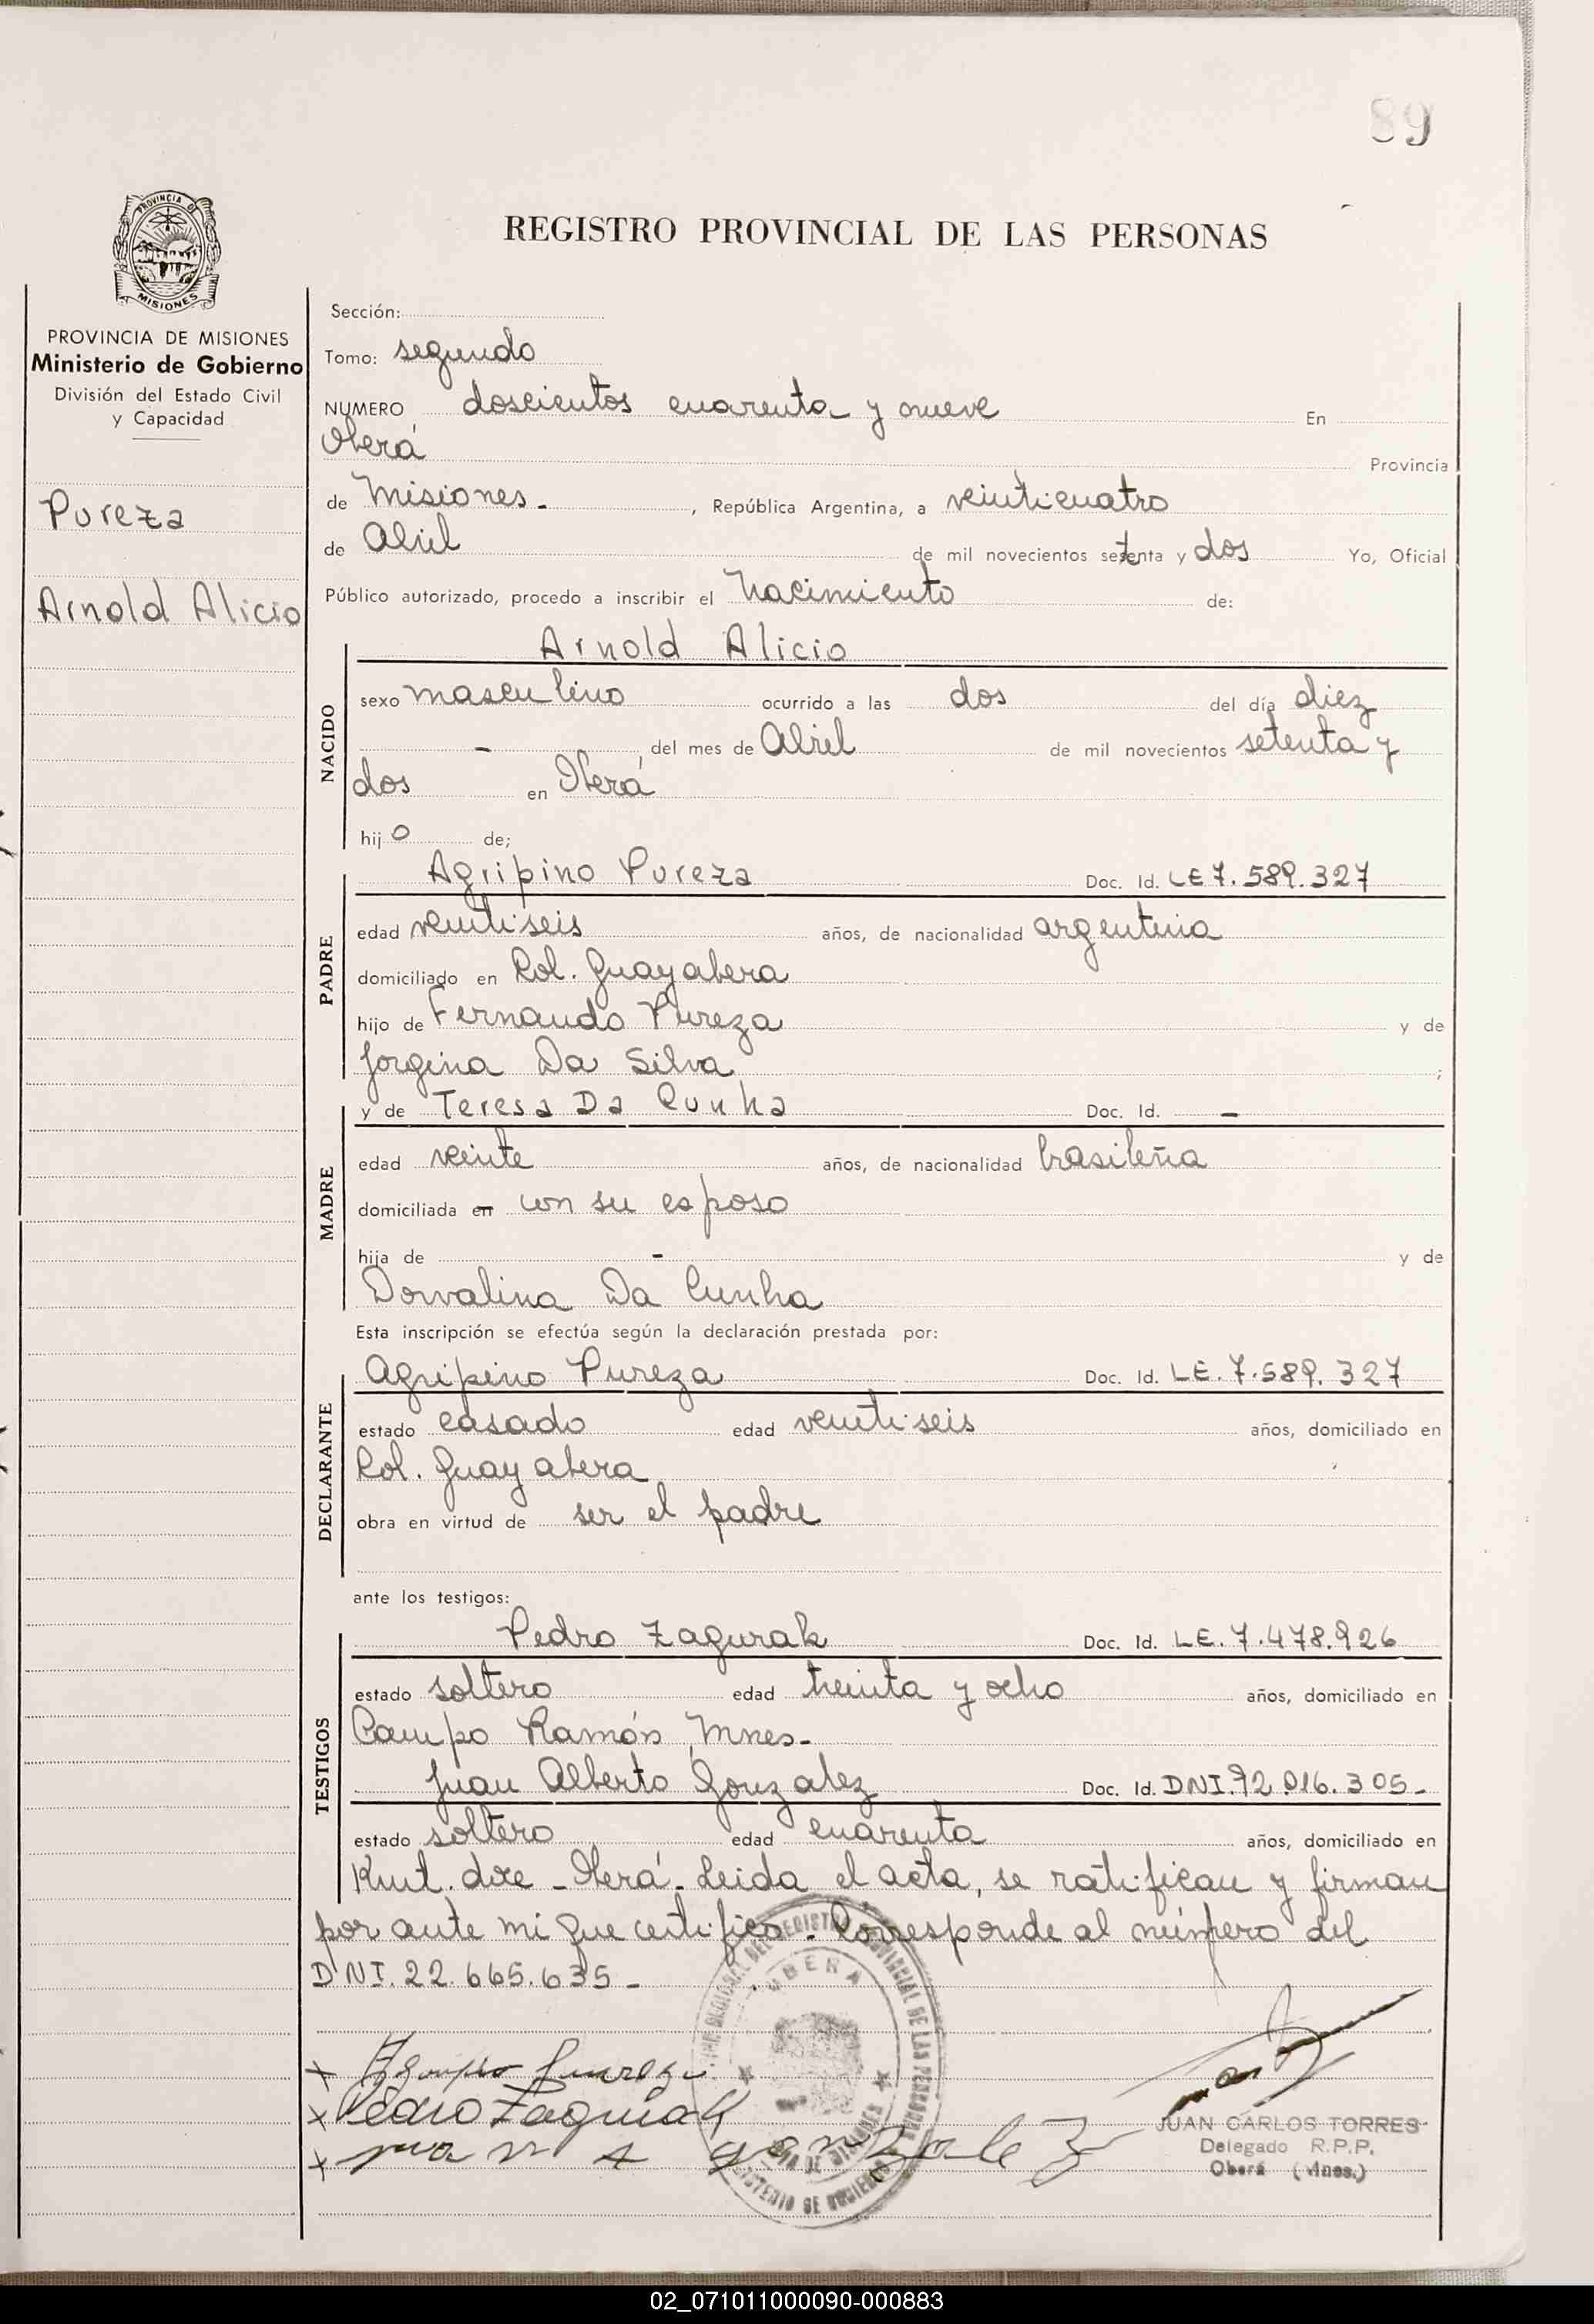 89
PROVINCIA DE
MISIONES
REGISTRO PROVINCIAL DE LAS PERSONAS
PROVINCIA DE MISIONES
Ministerio de Gobierno
División del Estado Civil
y Capacidad
Pureza
Arnold Alicio
Sección:
Tomo: segundo
NUMERO doscientos cuarenta y nueve En
Oberá Provincia
de Misiones.- , República Argentina, a veinticuatro
de Abril de mil novecientos setenta y dos Yo, Oficial
Público autorizado, procedo a inscribir el Nacimiento de:
NACIDO
Arnold Alicio
sexo masculino ocurrido a las dos del día diez
- del mes de Abril de mil novecientos setenta y
dos en Oberá
hijo de;
PADRE
Agripino Pureza Doc. Id. LE 7.589.327
edad veintiseis años, de nacionalidad argentina
domiciliado en Col. Guayabera
hijo de Fernando Pureza y de
Jorgina Da Silva ;
MADRE
y de Teresa Da Cunha Doc. Id. -
edad veinte años, de nacionalidad brasileña
domiciliada en con su esposo
hija de - y de
Dorvalina Da Cunha
Esta inscripción se efectúa según la declaración prestada por:
DECLARANTE
Agripino Pureza Doc. Id. LE. 7.589.327
estado casado edad veintiseis años, domiciliado en
Col. Guayabera
obra en virtud de ser el padre
ante los testigos:
TESTIGOS
Pedro Zagurak Doc. Id. LE. 7.478.926
estado soltero edad treinta y ocho años, domiciliado en
Campo Ramón Mnes-
Juan Alberto Gonzalez Doc. Id. DNI.92.016.305-
estado soltero edad cuarenta años, domiciliado en
Kmt. doce - Oberá - Leida el acta, se ratifican y firman
por ante mi que certifico - Corresponde al número del
DNI. 22.665.635 -
OBERA
x Agripino Pureza
x Pedro Zagurak
x Juan A gonzalez
JUAN CARLOS TORRES
Delegado R.P.P.
Oberá (Mnes.)
02_071011000090-000883